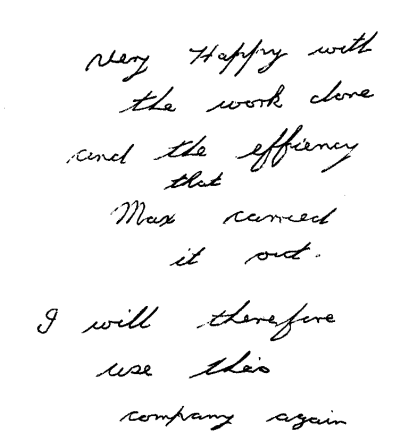 Very Happy with
the work done
and the effiency
that
Max carried
it out.
I will therefore
use this
company again